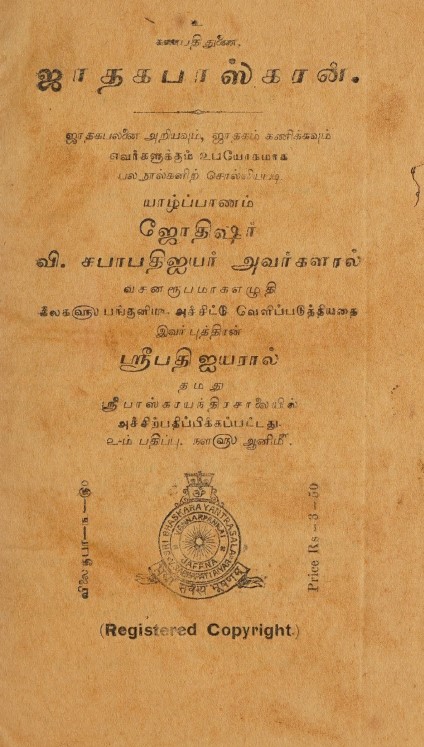 உ
கணபதி துணை.
ஜாதகபாஸ்கரன்.
ஜாதகபலனை அறியவும், ஜாதகம் கணிக்கவும்
எவர்களுக்கும் உபயோகமாக
பலநூல்களிற் சொல்லியபடி
யாழ்ப்பாணம்
ஜோதிஷர்
வி. சபாபதிஐயர் அவர்களால்
வசனரூபமாகஎழுதி
கீலக௵ பங்குனிமீ அச்சிட்டு வெளிப்படுத்தியதை
இவர்புத்திரன்
ஸ்ரீபதி ஐயரால்
தமது
ஸ்ரீ பாஸ்கரயந்திரசாலையில்
அச்சிற்பதிப்பிக்கப்பட்டது.
உ-ம் பதிப்பு. ௵ ஆனிமீ.
SRI BHASKARA YANTRASALA
VANNARPANNAI
JAFFNA
विद्या सर्वस्य भूषणम्
விலைரூபா-௩-௫௰
Price Rs - 3 - 50
(Registered Copyright.)